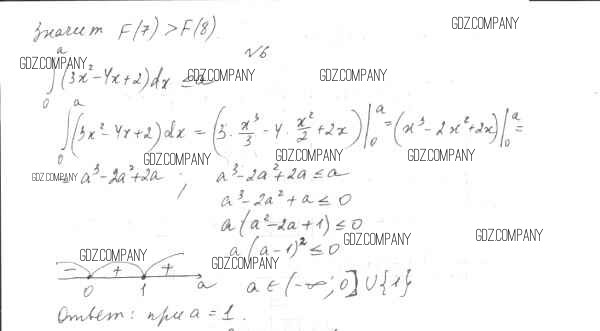 значит F(7) > F(8)
GDZ.COMPANY
№6
GDZ.COMPANY GDZ.COMPANY GDZ.COMPANY
∫₀ᵃ (3x² - 4x + 2) dx ≤ a
∫₀ᵃ (3x² - 4x + 2) dx = (3 · x³/3 - 4 · x²/2 + 2x) |₀ᵃ = (x³ - 2x² + 2x) |₀ᵃ =
GDZ.COMPANY GDZ.COMPANY GDZ.COMPANY
GDZ.COMPANY
= a³ - 2a² + 2a ; a³ - 2a² + 2a ≤ a
a³ - 2a² + a ≤ 0
a (a² - 2a + 1) ≤ 0
GDZ.COMPANY GDZ.COMPANY
a (a - 1)² ≤ 0
GDZ.COMPANY GDZ.COMPANY
- + +
0 1 a
a ∈ (-∞; 0] ∪ {1}
Ответ: при a = 1.